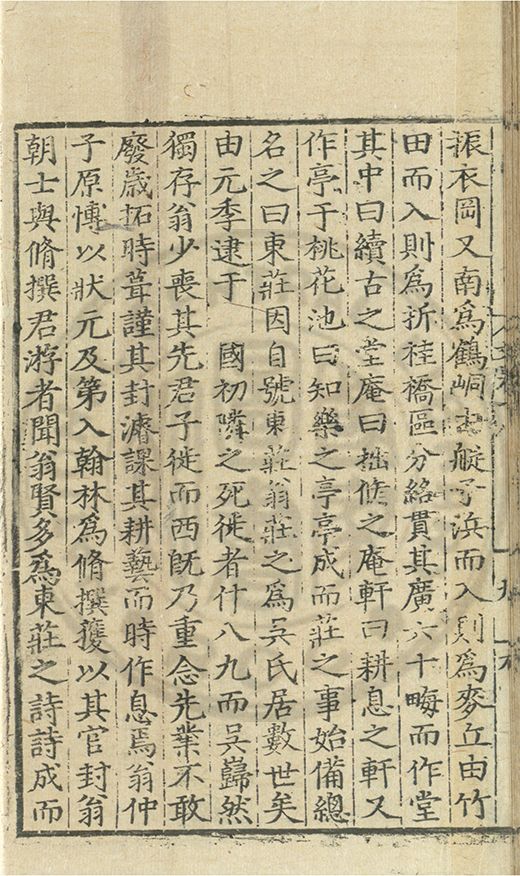 振衣岡又南爲鶴峒由艇子浜而入則爲麥丘由竹
田而入則爲折桂橋區分絡貫其廣六十畮而作堂
其中曰續古之堂庵曰拙脩之庵軒曰耕息之軒又
作亭于桃花池曰知樂之亭亭成而莊之事始備總
名之曰東莊因自號東莊翁莊之爲吳氏居數世矣
由元季逮于　國初隣之死徙者什八九而吳巋然
獨存翁少喪其先君子徙而西旣乃重念先業不敢
廢歲拓時葺謹其封濬課其耕藝而時作息焉翁仲
子原愽以狀元及第入翰林爲脩撰獲以其官封翁
朝士與脩撰君游者聞翁賢多爲東莊之詩詩成而